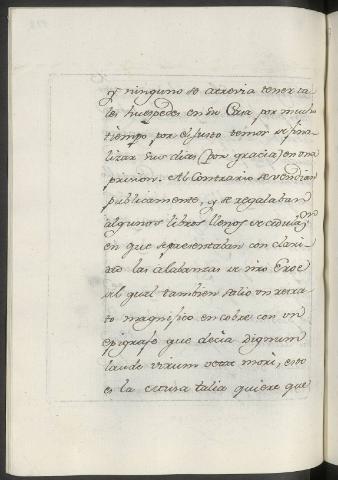 y ninguno se atrevia tener ta
les huespedes en su Casa por mucho
tiempo por el justo temor de fina
lizar sus dias (por gracia) en una
prision. Al Contrario se vendian
publicamente, y se regalaban
algunos libros llenos de
en que se presentaban con clari
dad las alabanzas de nro Eroe
del qual tambien salio un retra
to magnifico en cobre con un
epigrafe que decia Dignum
laude virum vetat mori, esto
es la quiere que